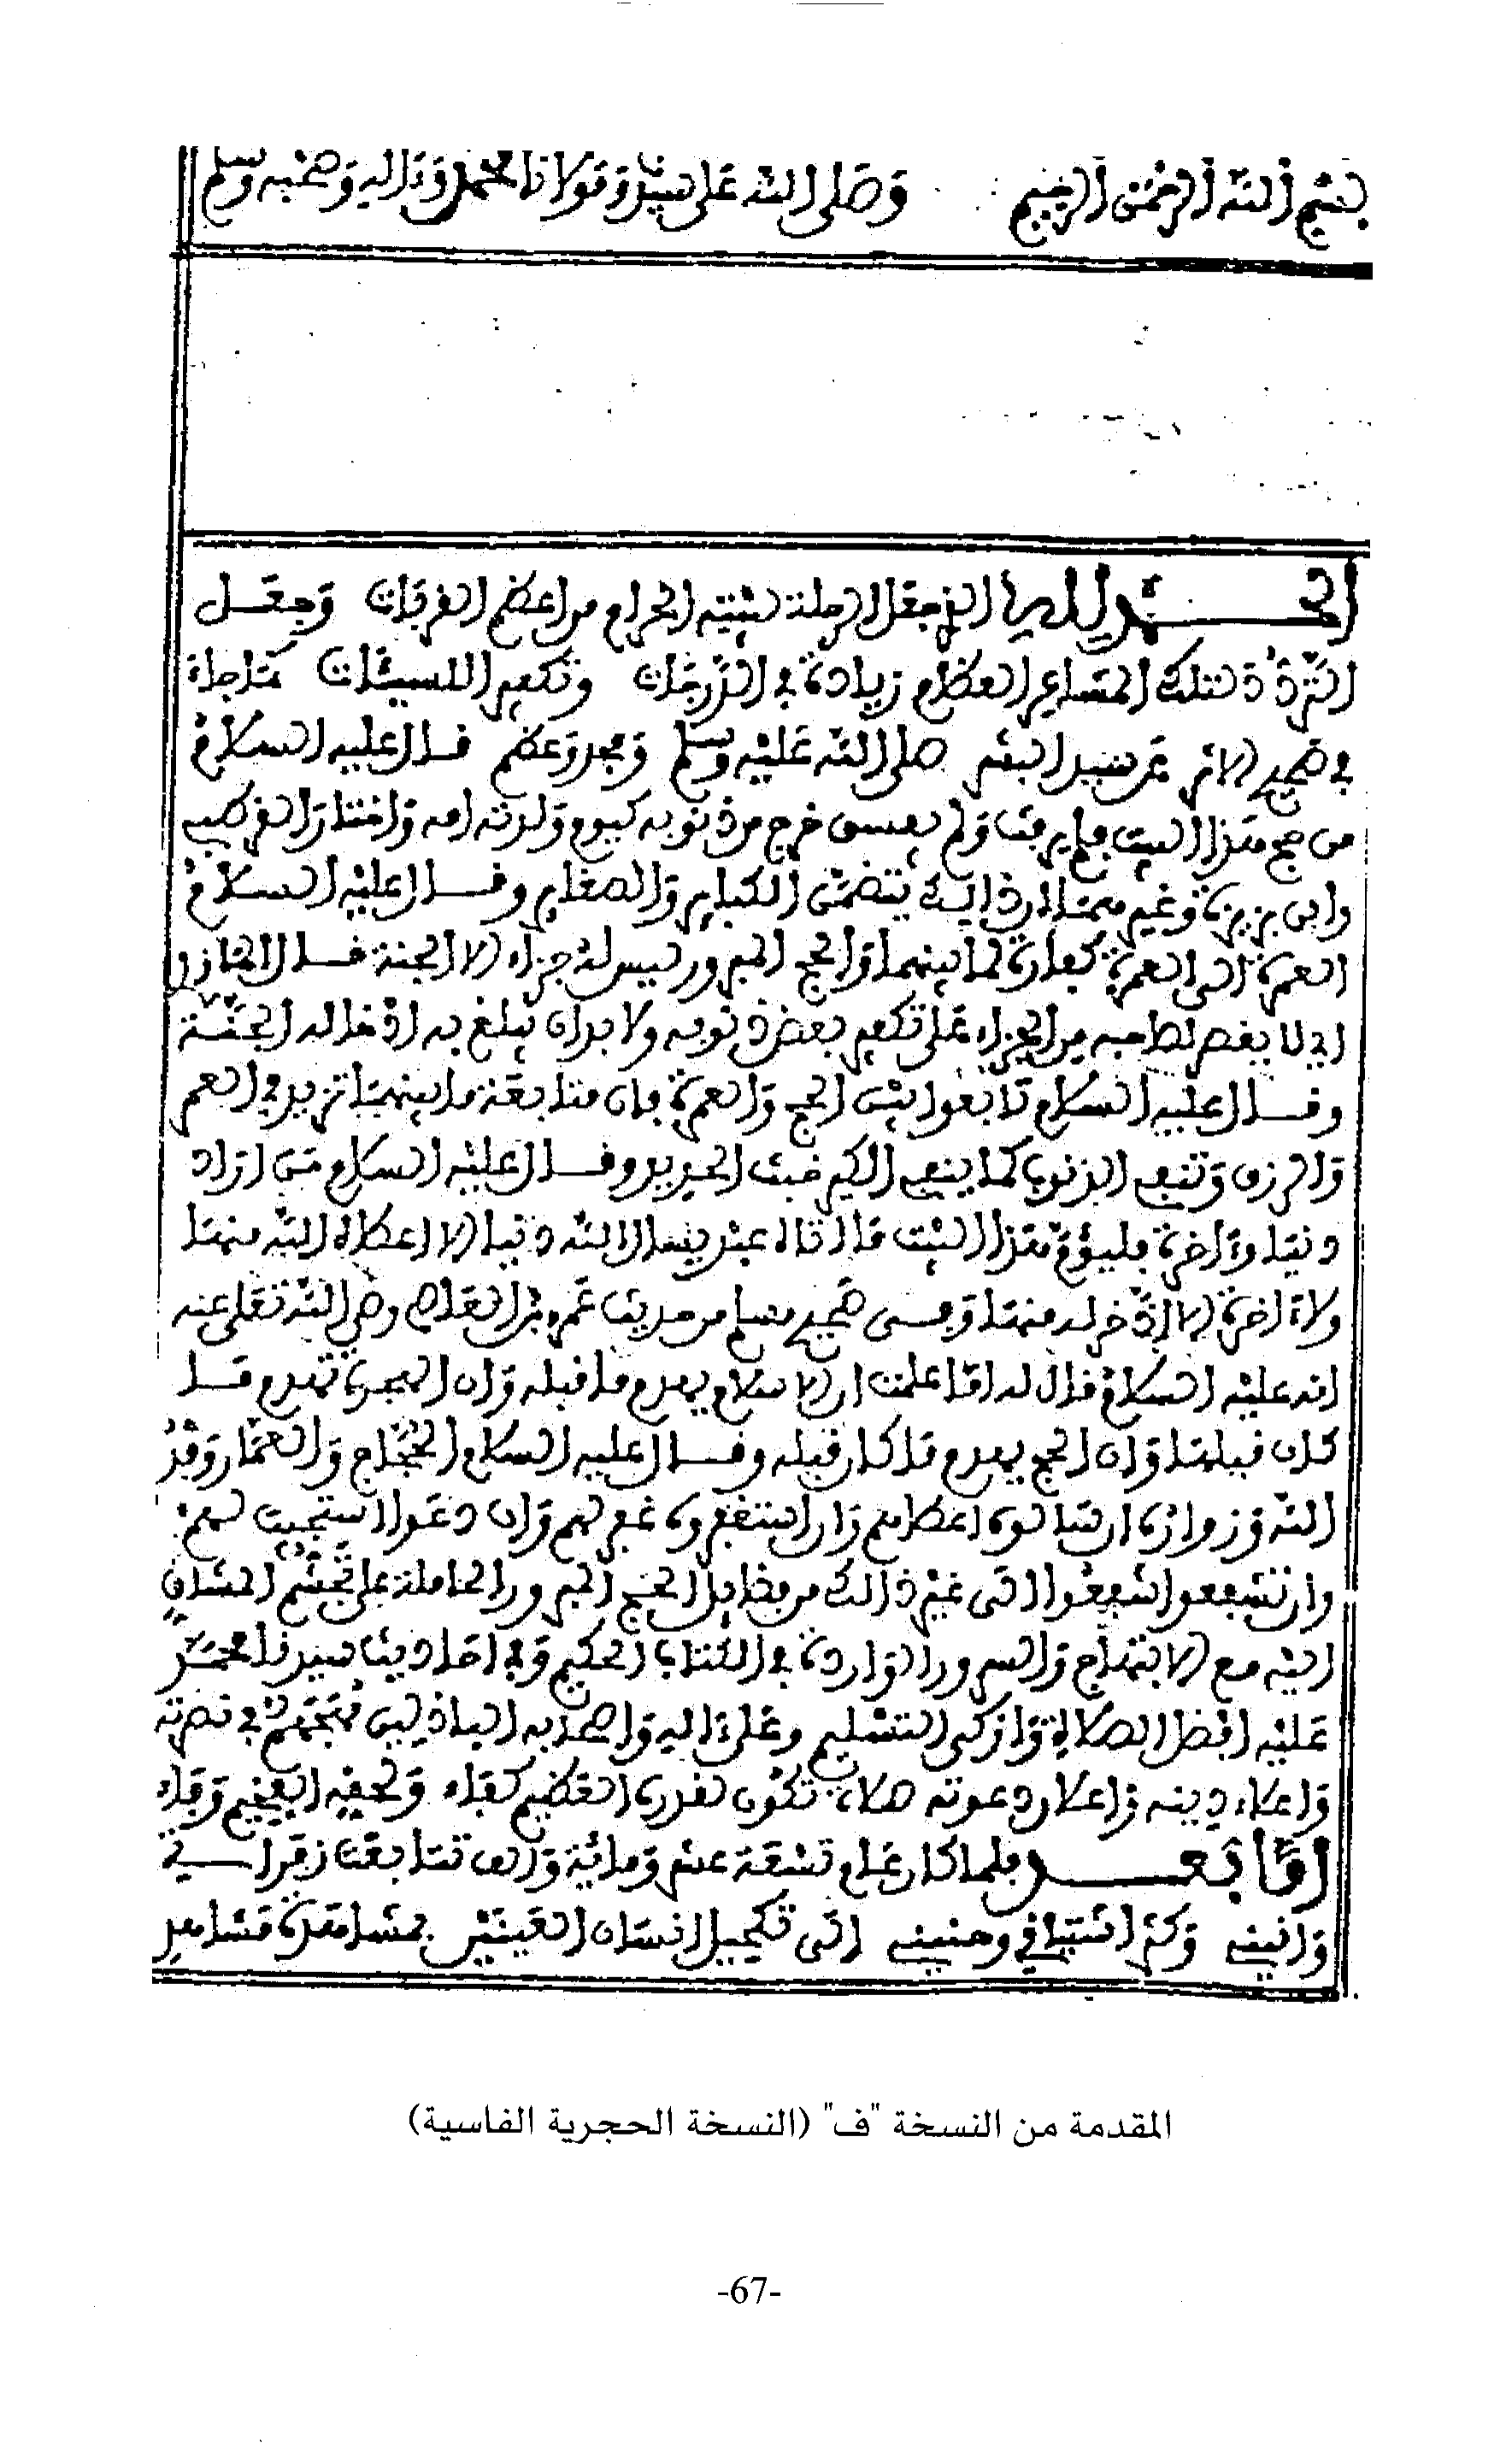 بسم الله الرحمن الرحيم وصلى الله على سيدنا ومولانا محمد وءاله وصحبه وسلم
الحمد لله الذي جعل الرحلة لبيته الحرام من اعظم القربات وجعل
التردد لتلك المشاعر العظام زيادة في الدرجات وتكفير السيئات كما جاء
في صحيح الاثر عن سيد البشر صلى الله عليه وسلم ومجد وعظم قال عليه السلام
من حج هذا البيت فلم يرفث ولم يفسق خرج من ذنوبه كيوم ولدته امه واختار القرطبي
وابن بزيزة وغيرهما ان ذالك يتضمن الكبائر والصغاير وقال عليه السلام
العمرة الى العمرة كفارة لما بينهما والحج المبرور ليس له جزاء الا الجنة قال المازري
اي لا يقصر لصاحبه من الجزاء على تكفير بعض ذنوبه ولا بد ان يبلغ به ادخاله الجنة
وقال عليه السلام تابعوا بين الحج والعمرة فان متابعة ما بينهما تزيد في العمر
والرزق وتنفي الذنوب كما ينفي الكير خبث الحديد وقال عليه السلام من اراد
دنيا وءاخرة فليؤم هذا البيت ما اتاه عبد يسال الله دنيا الا اعطاه الله منها
ولا ءاخرة الا ادخر له منها وفي صحيح مسلم من حديث عمرو بن العاص رضي الله تعلى عنه
انه عليه السلام قال له اما علمت ان الاسلام يهدم ما قبله وان الهجرة تهدم ما
كان قبلها وان الحج يهدم ما كان قبله وقال عليه السلام الحجاج والعمار وفد
الله وزواره ان سالوه اعطاهم وان استغفروه غفر لهم وان دعوا استجيب لهم
وان تشفعوا شفعوا الى غير ذالك من فضايل الحج المبرور الحاملة على تجشم المشاق
اليه مع الابتهاج والسرور الواردة في الكتاب الحكيم وفي احاديث سيدنا محمد
عليه افضل الصلاة وازكى التسليم وعلى ءاله واصحابه الباذلين مهجهم في نصرته
واعلاء دينه واعلان دعوته صلاة تكون لقدره العظيم كفاء ولحقه الفخيم وفاء
اما بعد فلما كان عام تسعة عشر ومائة والف تتابعت زفراتي
وانيني وكثر اشتياقي وحنيني الى تكحيل انسان العينين بمشاهدة مشاهد
المقدمة من النسخة "ف" (النسخة الحجرية الفاسية)
-67-